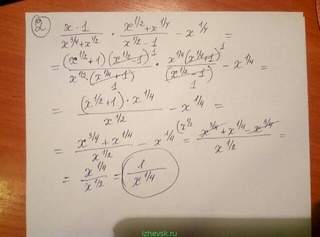 ② (x-1)/(x^{3/4}+x^{1/2}) · (x^{1/2}+x^{1/4})/(x^{1/2}-1) - x^{1/4} =
= (x^{1/2}+1)(x^{1/2}-1)^1/(x^{1/2}·(x^{1/4}+1)_1) · x^{1/4}(x^{1/4}+1)^1/(x^{1/2}-1)_1 - x^{1/4} =
= (x^{1/2}+1)·x^{1/4}/x^{1/2} - x^{1/4} =
= (x^{3/4}+x^{1/4})/x^{1/2} - x^{1/4} (x^{1/2} = (x^{3/4}+x^{1/4}-x^{3/4})/x^{1/2} =
= x^{1/4}/x^{1/2} = 1/x^{1/4}
izhevsk.ru